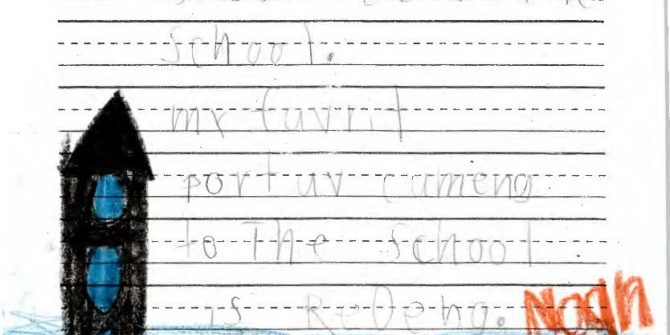 school.
my favrit
port uv cumeng
to The school
is ReDeng. Noah